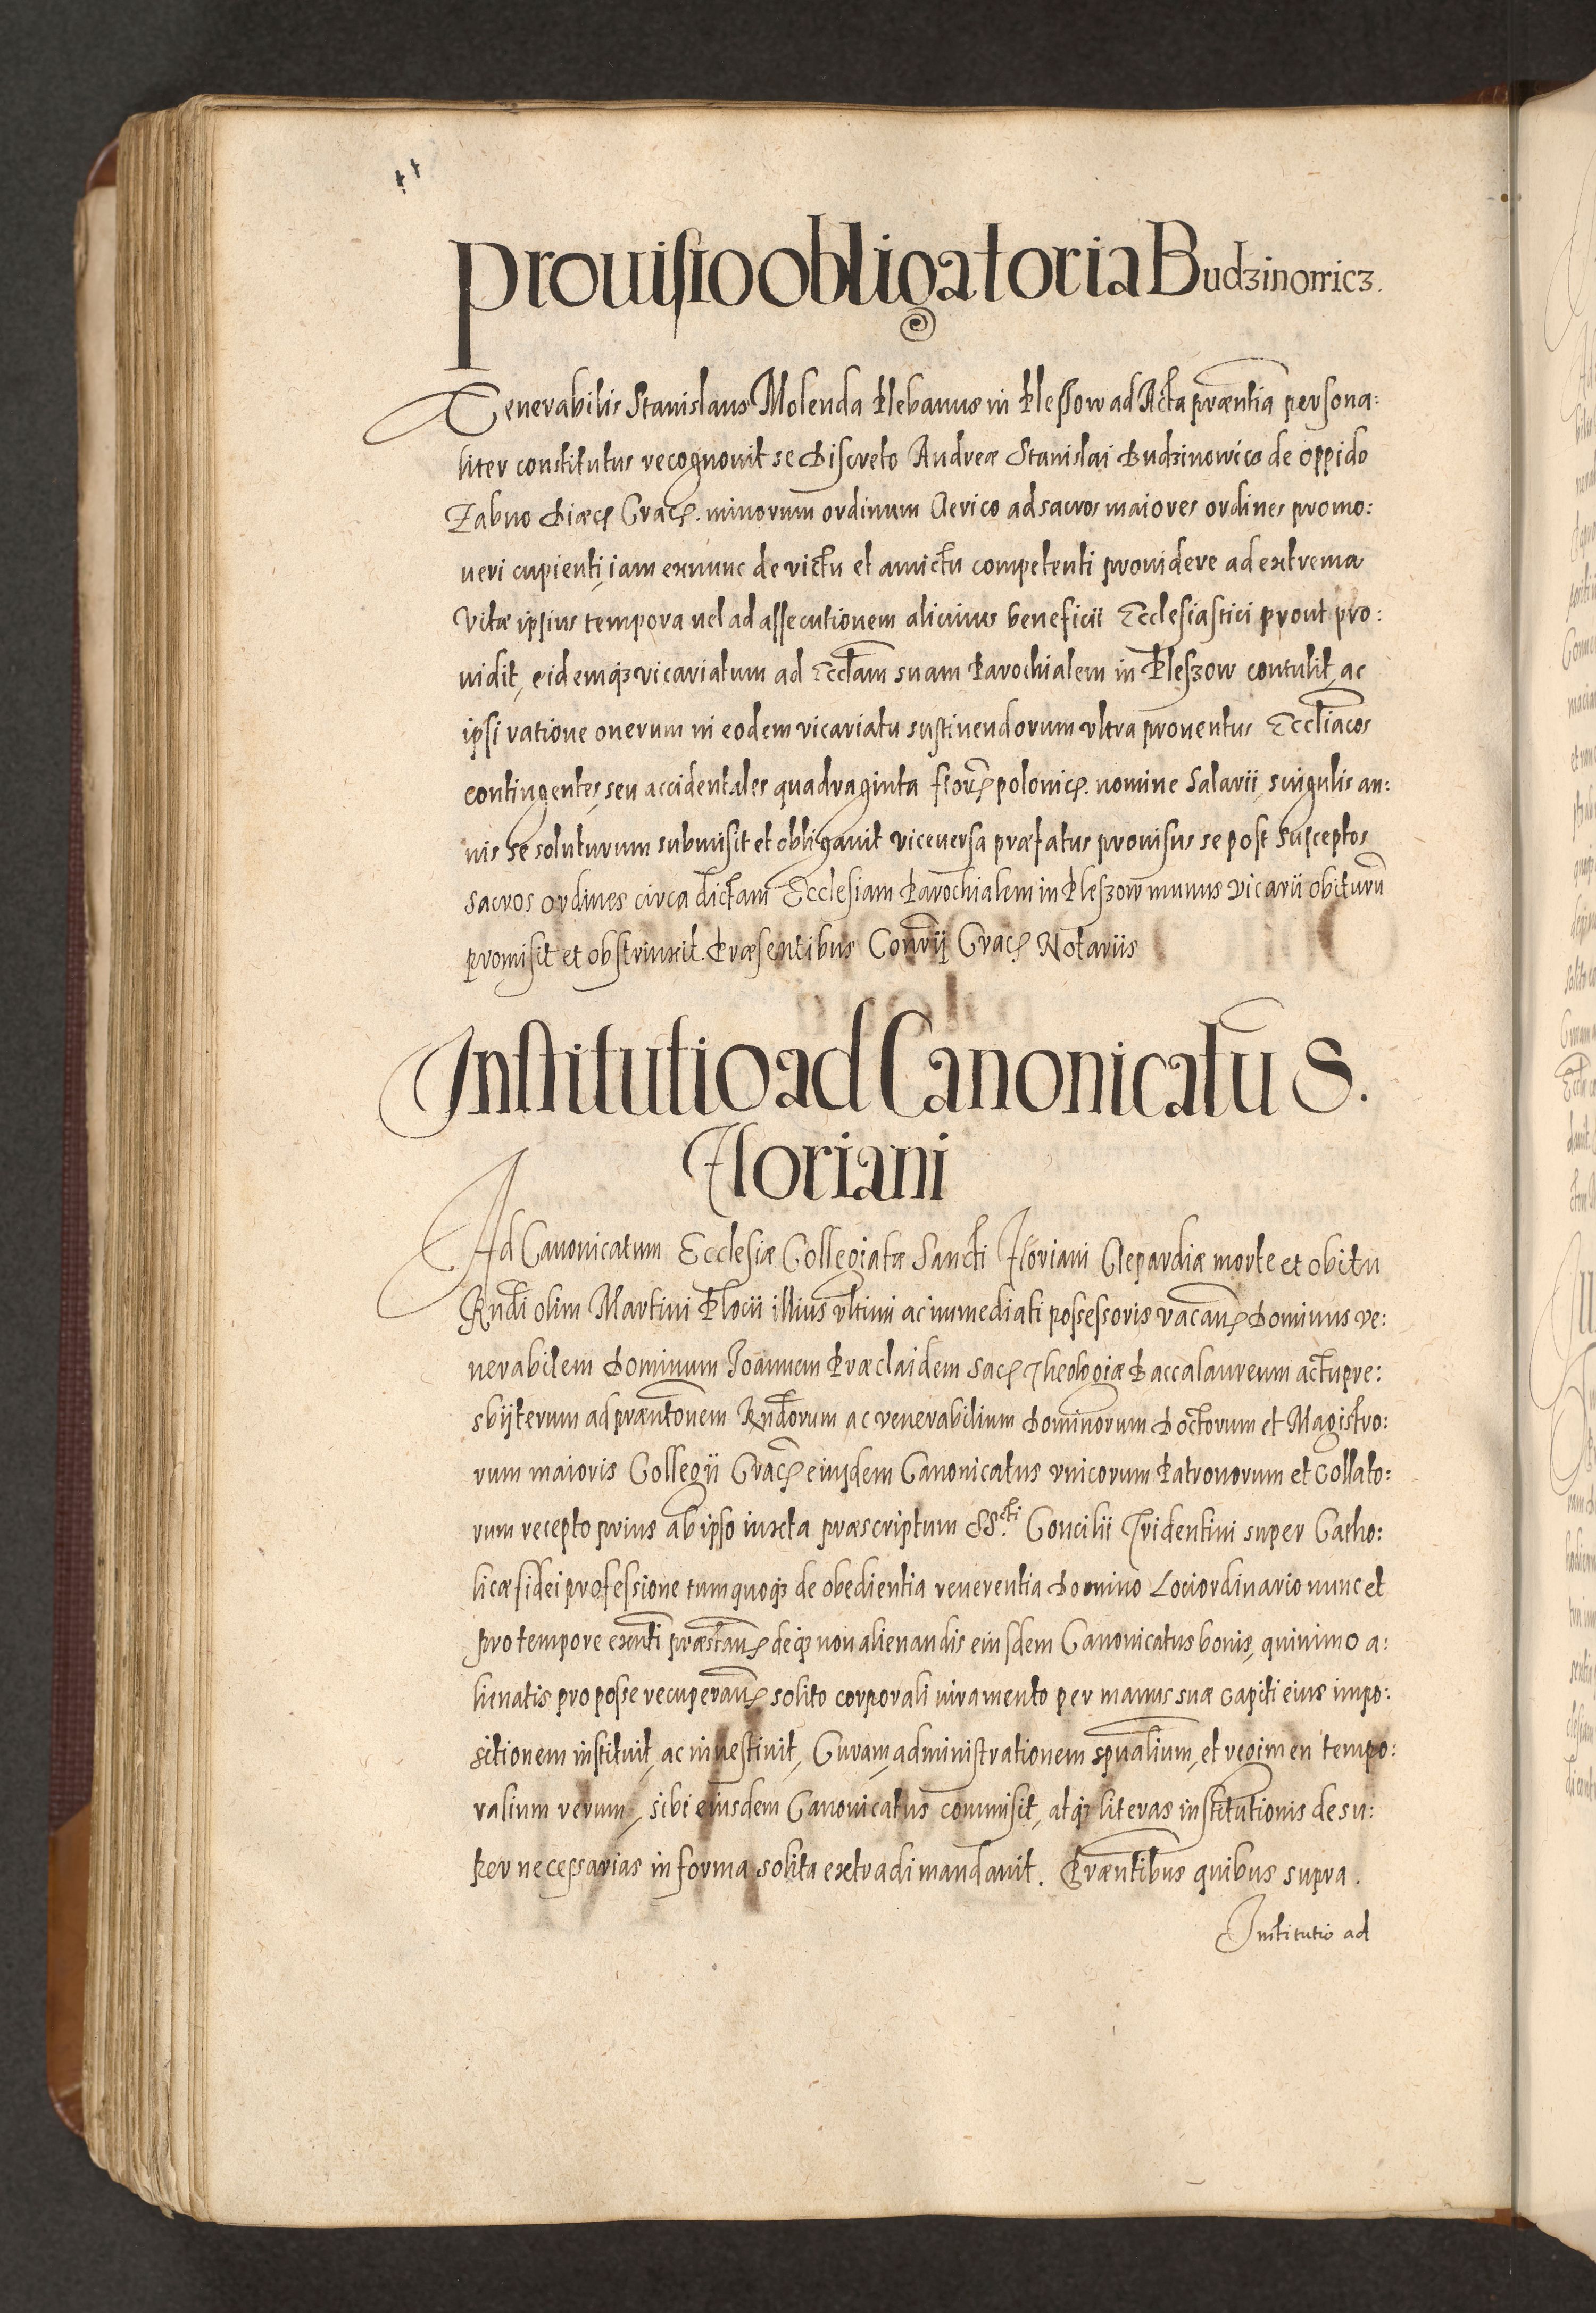 Prouisio obligatoria Budzinowicz.
Venerabilis Stanislaus Molenda Plebanus in Plessow ad Acta præntia persona:
liter constitutus recognouit se Discreto Andreæ Stanislai Budzinowicz de oppido
Zabno Diæcς Cracς. minorum ordinum Clerico ad sacros maiores ordines promo:
ueri cupienti, iam exnunc de victu et amictu competenti prouidere ad extrema
Vitæ ipsius tempora uel ad assecutionem alicuius beneficii Ecclesiastici prout pro:
uidit, eidemqꝫ vicariatum ad Ecclam suam Parochialem in Pleszow contulit, ac
ipsi ratione onerum in eodem vicariatu sustinendorum vltra prouentus Eccliacos
contingentes, seu accidentales quadraginta florς polonicς. nomine Salarii, singulis an:
nis se soluturum submisit et obligauit viceuersa præfatus prouisus se post susceptos
sacros ordines circa dictam Ecclesiam Parochialem in Pleszow munus vicarii obiturũ
promisit et obstrinxit. Præsentibus Conrii Cracς Notariis
Institutio ad Canonicatũ S.
Floriani
Ad Canonicatum Ecclesiæ Collegiatæ Sancti Floriani Clepardiæ morte et obitu
Rndi olim Martini Plocii illius vltimi ac immediati possessoris vacanς Dominus ve:
nerabilem Dominum Joannem Præclaidem Sacς Theologiæ Baccalaureum actu pre:
sbijterum ad præntonem Rndorum ac venerabilium Dominorum Doctorum et Magistro:
rum maioris Collegii Cracς eiusdem Canonicatus vnicorum Patronorum et Collato:
rum recepto prius ab ipso iuxta præscriptum SS.cti Concilii Tridentini super Catho:
licæ fidei professione tum quoqꝫ de obedientia reuerentia Domino Loci ordinario nunc et
pro tempore exnti præstanς deqꝫ non alienandis eiusdem Canonicatus bonis, quinimo a:
lienatis pro posse recuperanς solito corporali iuramento per manus suæ capiti eius impo:
sitionem instituit, ac inuestiuit, Curam, administrationem spualium, et regimen tempo:
ralium rerum, sibi eiusdem Canonicatus commisit, atqꝫ literas institutionis desu:
per necessarias in forma solita extradi mandauit. Præntibus quibus supra.
Institutio ad